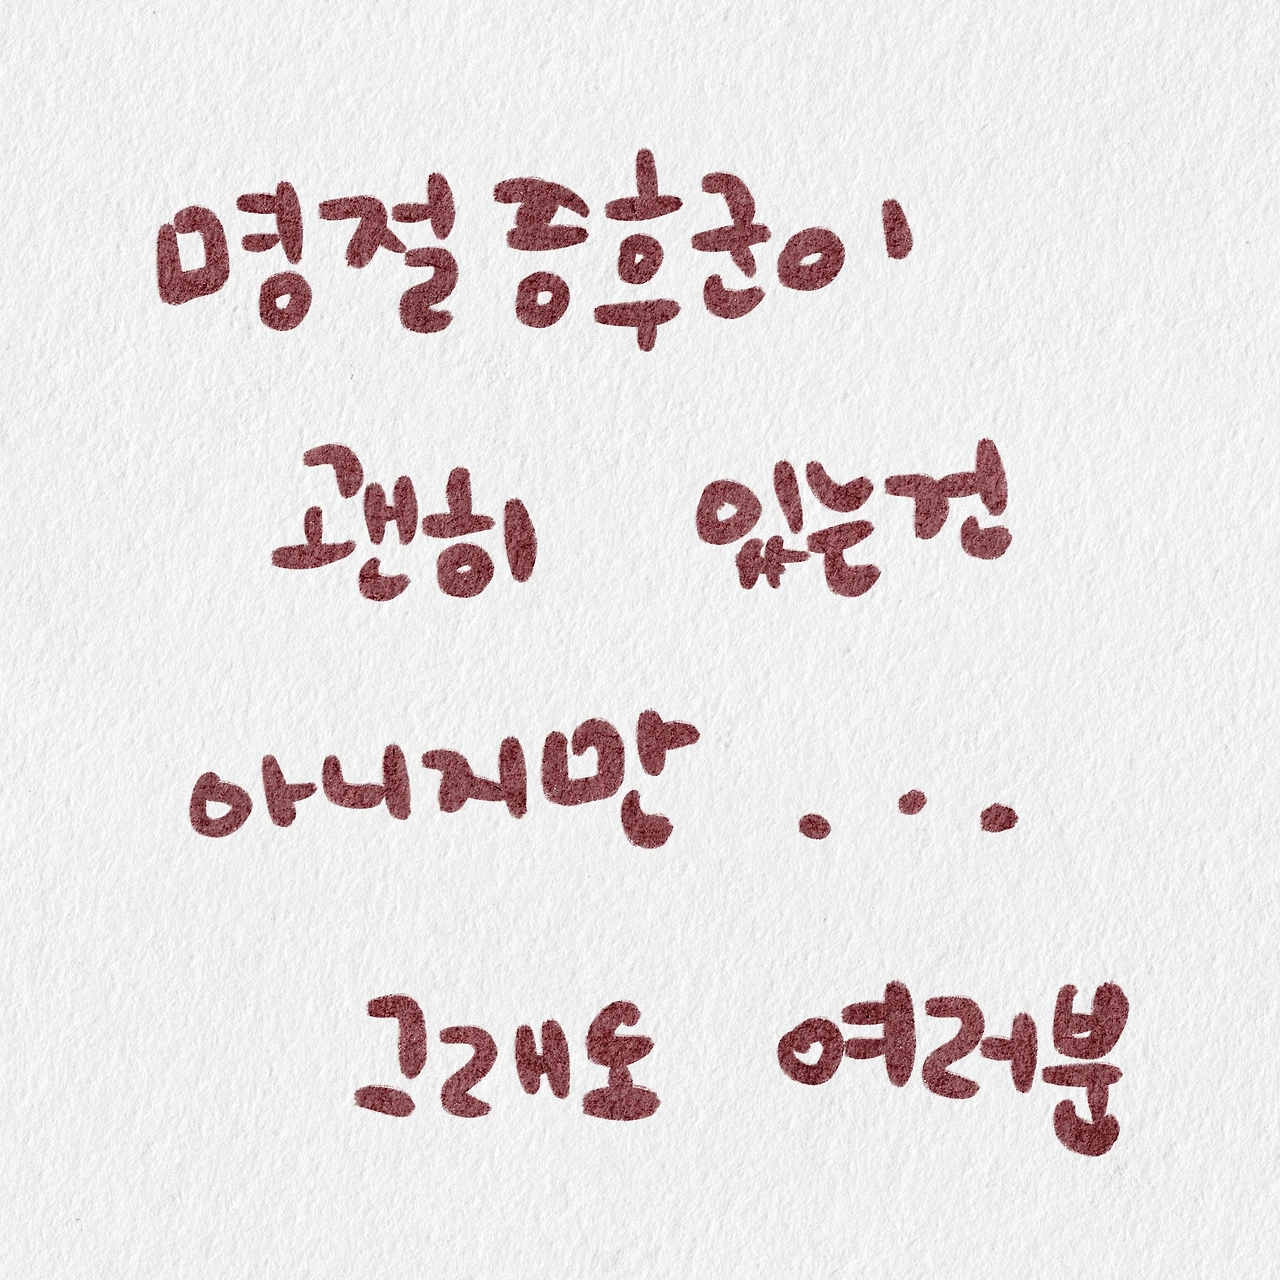 명절증후군이
괜히 있는건
아니지만 ...
그래도 여러분